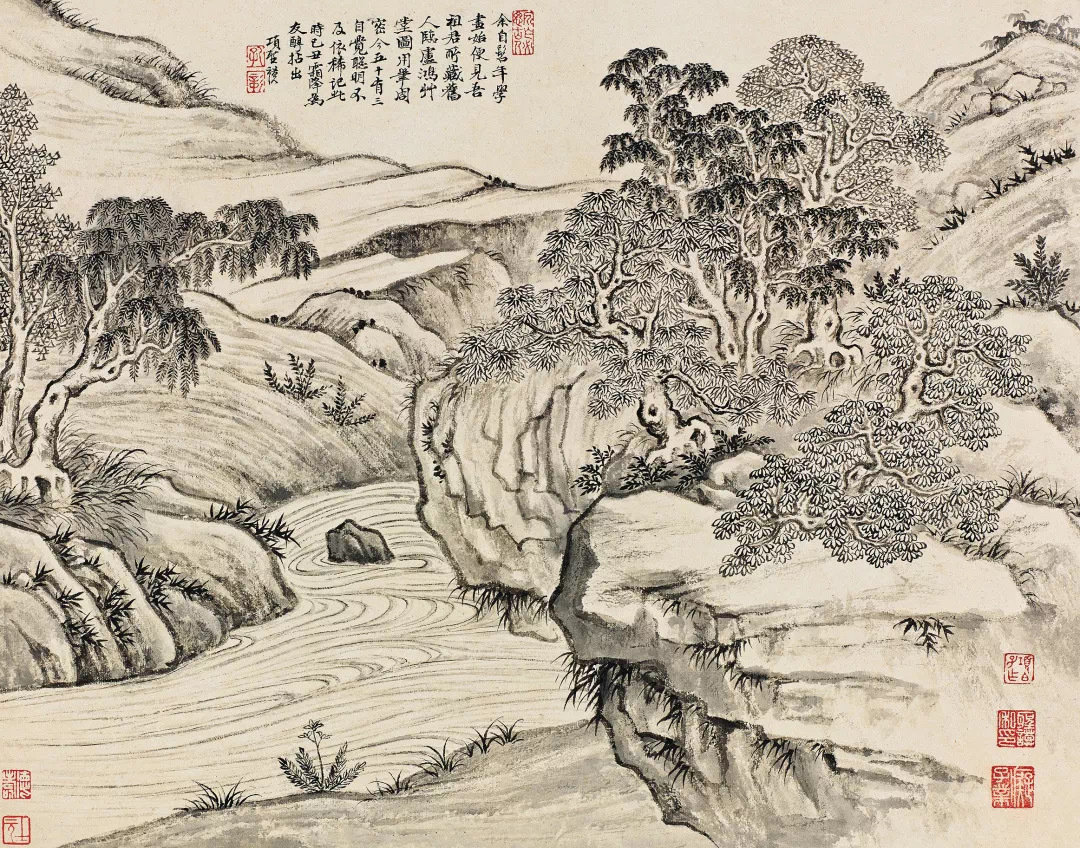 余自髫年學
畫始便見吾
祖君所藏舊
人臨盧鴻艸
堂圖用筆周
密今五十有三
自覺聰明不
及依稀記此
時己丑霜降為
友醉拈出
項聖謨
孔彰